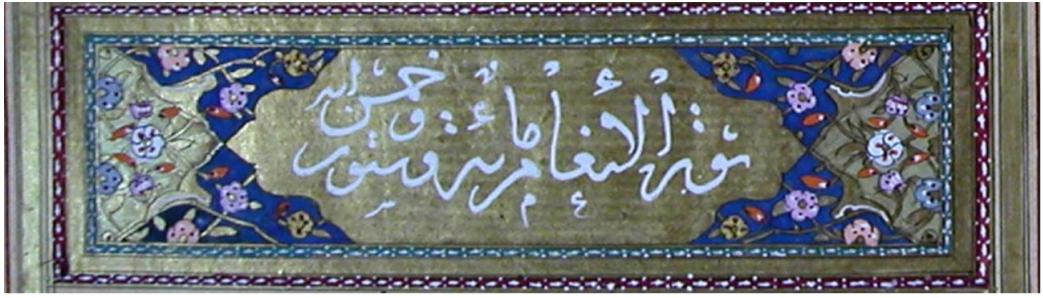 سورة الأنعام مائة وخمس وستون آية